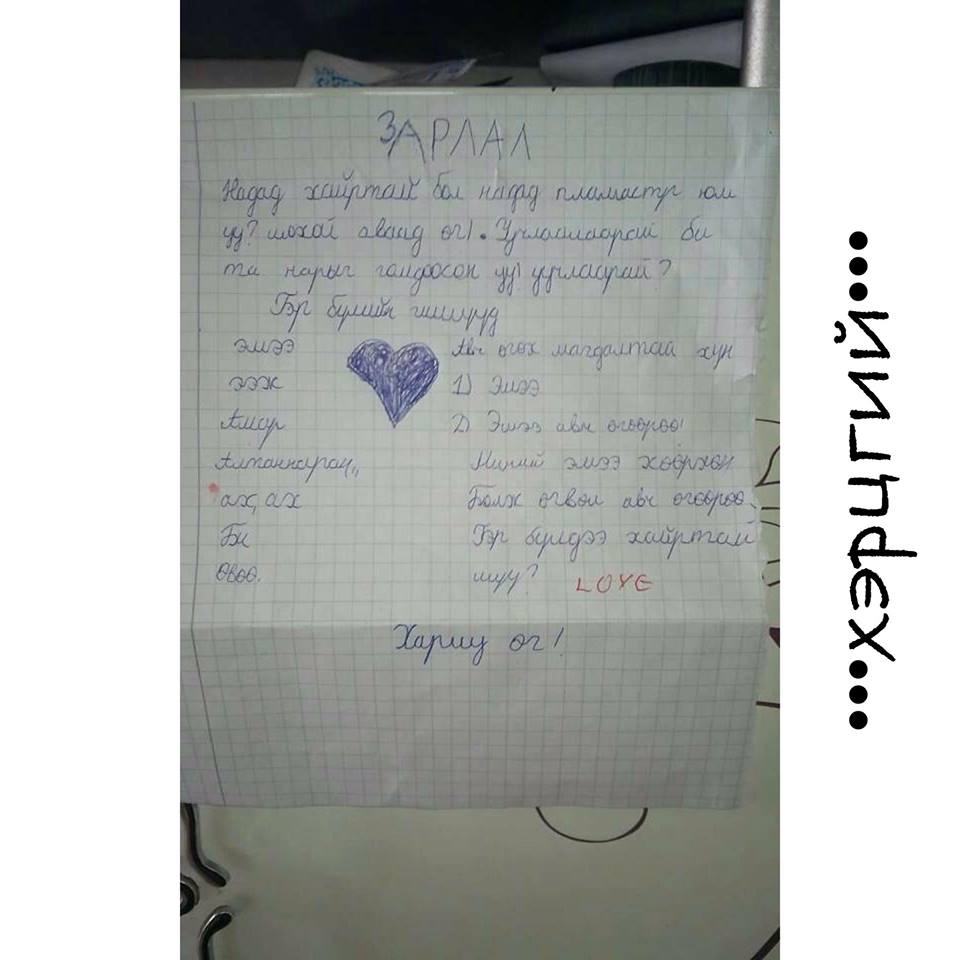 ЗАРЛАЛ
Надад хайртай бол надад пламастр юм
уу? шохой аваад өг!. Уучлаалаарай би
та нарыг гомдоосон уу! уучлаарай?
Гэр бүлийн гишүүд
эмээ
ээж
Амар
Алтаннаран,,
ах, ах
Би
Өвөө.
Авч өгөх магадлалтай хүн
1) Эмээ
2) Эмээ авч өгөөрөө!
Миний эмээ хөөрхөн
Болж өгвөл авч өгөөрөө.
Гэр бүлдээ хайртай
шүү? LOVE
Хариу өг!
...хэрцгийй...